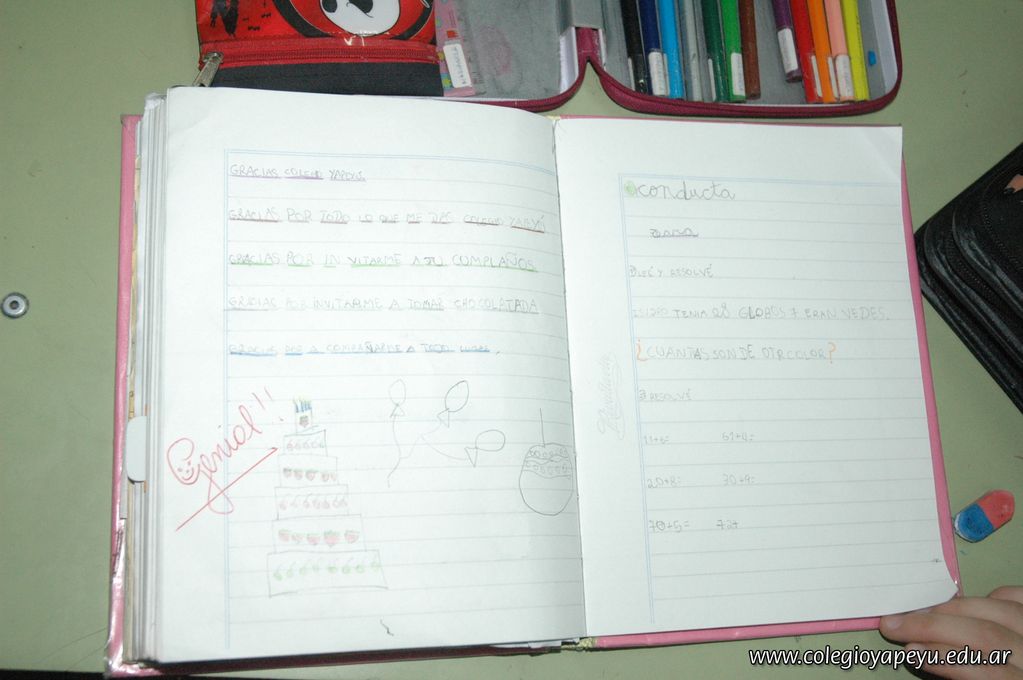 GRACIAS COLEGIO YAPEYU.
GRACIAS POR TODO LO QUE ME DAS COLEGIO
GRACIAS POR IN VITARME A TU CUMPLAÑOS
GRACIAS POR INVITARME A TOMAR CHOCOLATADA
GRACIAS POR A COMPAÑARME A TODO LUGAR.
Genial!!
conducta
① LEÉ Y RESOLVÉ
ISIDRO TENIA 28 GLOBOS 7 ERAN VEDES.
¿CUANTAS SON DE OTR COLOR?
② RESOLVÉ
11+6= 61+4=
20+8= 30+9=
70+5=
www.colegioyapeyu.edu.ar